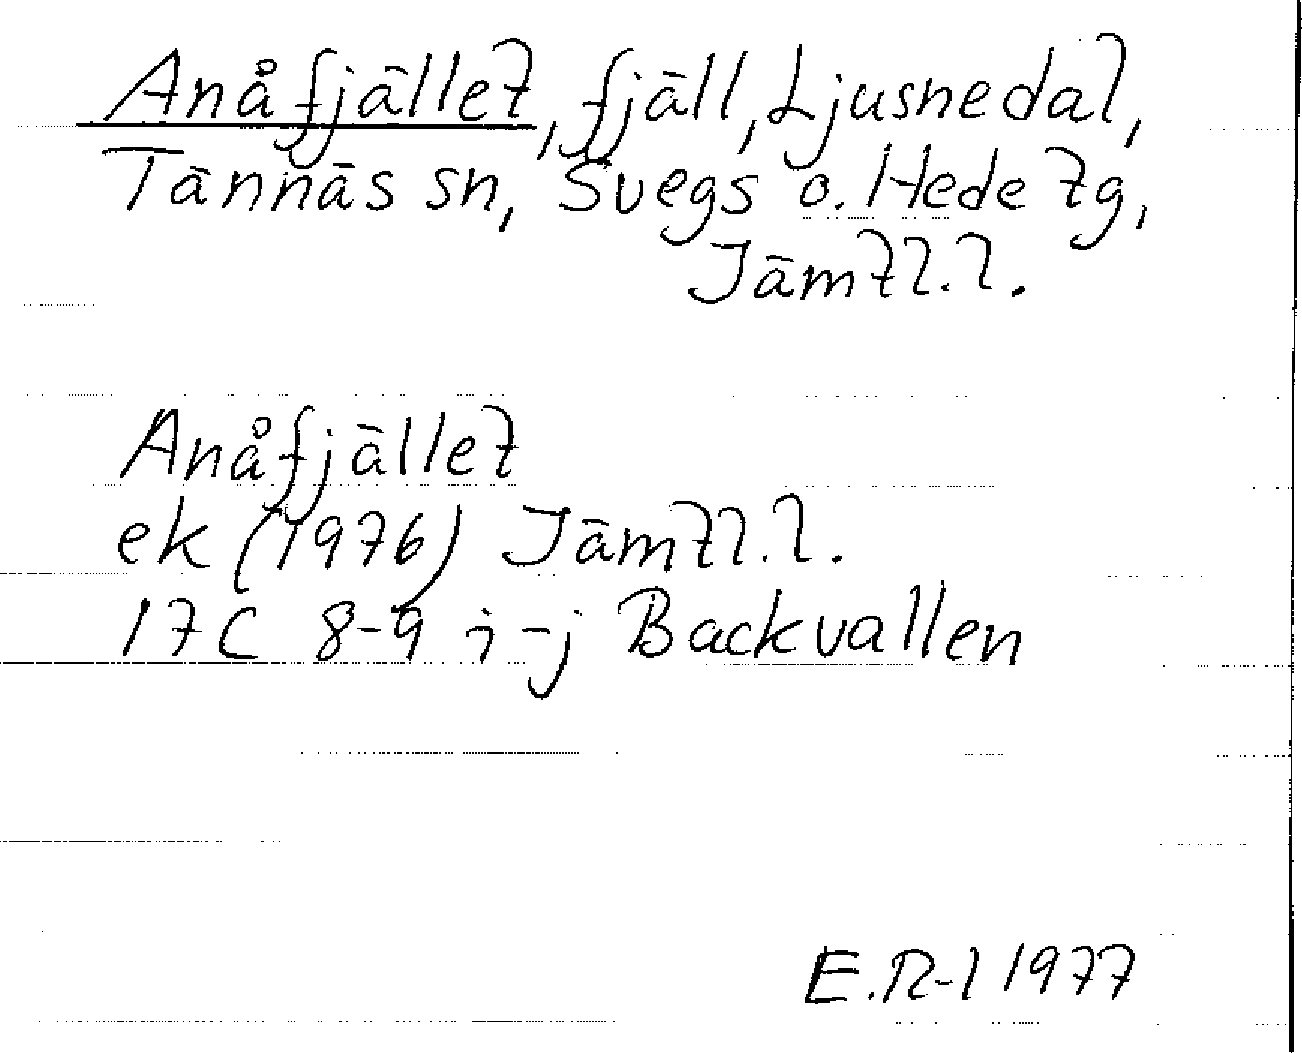 Anåfjället, fjäll, Ljusnedal,
Tännäs sn, Svegs o. Hede tg,
Jämtl.l.
Anåfjället
ek (1976) Jämtl.l.
17C 8-9 i-j Backvallen
E.R-l 1977